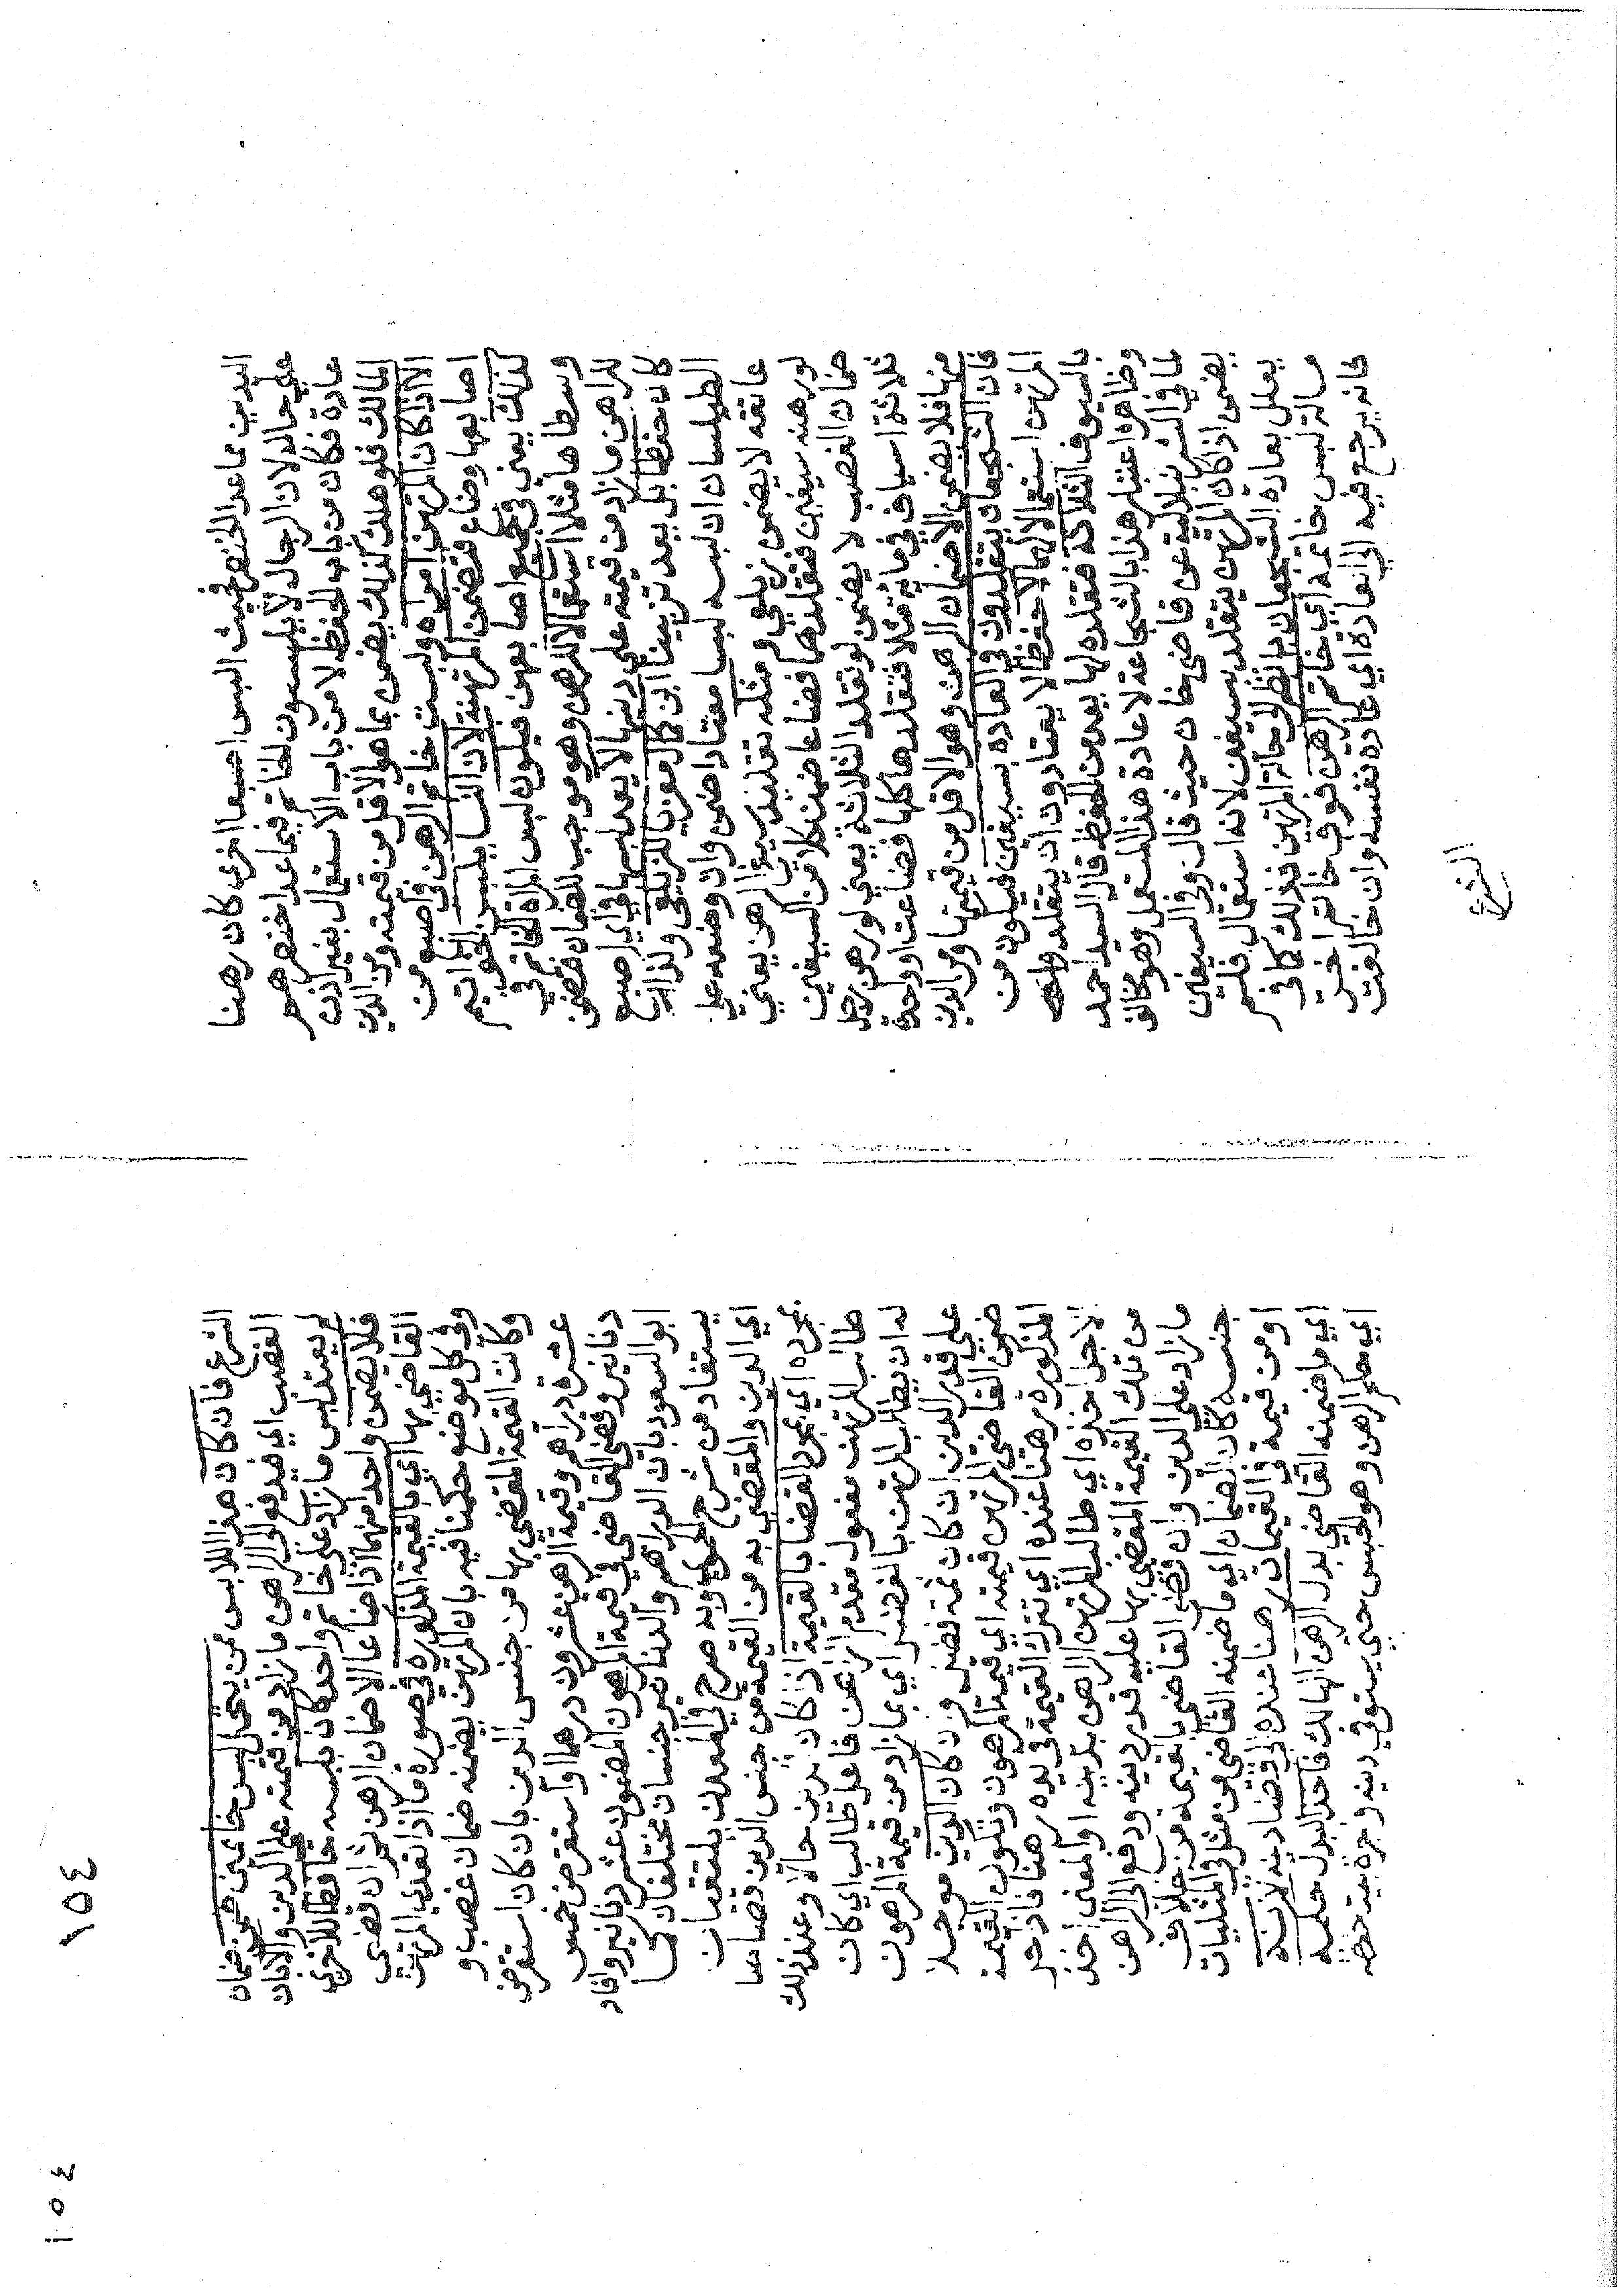 اليدين ماعدا الخنصر فحيث البس اصبعا اخرى كان رهنا
على حاله لان الرجال لا يلبسون الخاتم فيما عدا خنصرهم
عادة فكان من باب الحفظ لا من باب الاستعمال بغير اذن
المالك فلو هلك كذلك يضمن بما هو الاقل من قيمته ومن الدين
الا اذا كان المرتهن امراة ولبست خاتم الرهن في اصبع من
اصابعها وضاع فتضمن المرتهنة لان النسا يلبسن الخواتيم
كذلك يعني في جميع اصابعهن فيكون لبس المراة الخاتم في
وسطاها مثلا استعمالا للرهن وهو موجب للضمان فتضمن
للراهن ما زاد من قيمته على دينها لا يعد لبسها في اي اصبع
كان حفظا بل يعد تزيينا ابن كمال معزيا للزيلعي وكذا
الطيلسان ان لبسه لبسا معتادا ضمن وان وضعه على
عاتقه لا يضمن زيلعي ومثله تقليد سيفي الرهن يعني
لو رهنه سيفين فتقلدهما فضاعا ضمن كلا من السيفين
ضمان الغصب لا يضمن لو تقلد الثلاثة يعني لو رهن رجل
ثلاثة اسياف في ماية مثلا فتقلدها كلها فضاعت او واحد
منها فلا يضمن الا ضمان الرهن وهو الاقل من قيمتها ومن الدين
فان الشجعان يتقلدون في العادة بسيفين فيكون من
المرتهن استعمالا لها لا حفظا لا يعتادون ان يتقلدوا
بالسيوف الثلاثة فتقلده لها يعد من الحفظ قال السيد احمد
وظاهره اعتبار هذا بالشجاعة لا عادة هذا المستعمل وهو مخالف
لما في الشرنبلالية عن قاضي خان حيث قال وفي السيفين
يضمن اذا كان المرتهن يتقلد بسيفين لانه استعمال فلم
يعلل بعادة الشجعان بل نظر الى حالة المرتهن فذلك كما في
مسالة لبس خاتمه اي خاتم الرهن فوق خاتم اخر
فانه يرجع فيه الى العادة اي عادة نفسه وان خالفت
الشرع
الشرع فان كان هذا اللابس ممن يتجمل بلبس خاتمين ضمن ضمان
الغصب اي فيدفع الى الراهن ما زاد من قيمته على الدين والا بان
لم يعتد لبس ما زاد على خاتم واحد كان بلبسه حافظا للاخرى
فلا يضمن واحدا منهما اذا ضاعا الا ضمان الرهن ثم ان قضى
القاضي بها اي بالقيمة المذكورة في صورة ما اذا تعدى المرتهن
وفي كل موضع حكمنا فيه بان المرتهن يضمنه ضمان غصب و
وكانت القيمة المقضي بها من جنس الدين بان كان استقرض
عشرة دراهم وقيمة الرهن عشرون درهما او استقرض خمس
دنانير وقضى القاضي في قيمة المرهون المضمون عشر دنانير وافاد
ابو السعود بان الدراهم والدنانير جنسان مختلفان كما
يستفاد من شرح الحموي وبه صرح في المعدن يلتقيان
اي الدين والمقضي به من القيمة من جنس الدين قصاصا
بمجرده اي بمجرد القضا بالقيمة اذا كان الدين حالا وعند ذلك
طالب المرتهن مفعول مقدم الراهن فاعل طالب اي كان
له ان يطالب المرتهن بالفضل اي بما زاد من قيمة المرهون
على قدر الدين ان كان ثمة فضل وان كان الدين موجلا
ضمن القاضي المرتهن قيمته اي قيمة المرهون وتكون القيمة
المذكورة رهنا عنده اي تترك القيمة في يده رهنا فاذا حل
الاجل اخذه اي طالب المرتهن الراهن بدينه او المعنى اخذ
من تلك القيمة المقضي بها عليه قدر دينه ودفع الى الراهن
ما زاد على الدين وان قضى القاضي بالقيمة من خلاف
جنسه كان الضمان اي ما ضمنه القاضي من مثل في المثليات
او من قيمة في القيميات رهنا عنده الى قضا دينه لانه
اي ما ضمنه القاضي بدل الرهن الهالك فاخذ البدل حكمه
اي حكم الرهن وهو الحبس حتى يستوفي دينه واجرة بيت حفظه
١٥٤
١٥٤